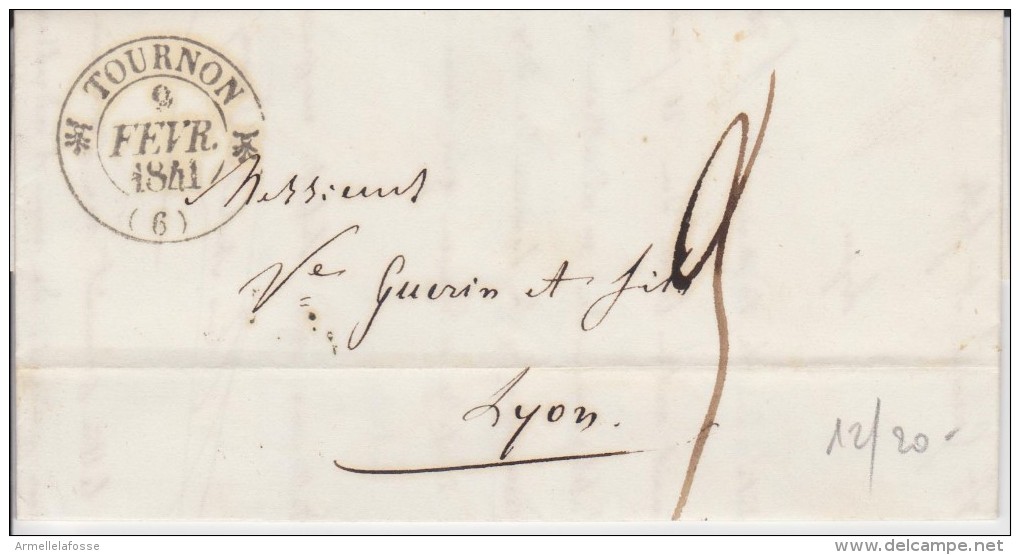 TOURNON
9
FEVR.
1841
(6)
Messieurs
Ve Guerin et fils
Lyon.
12/20-
Armellelafosse
delcampe.net